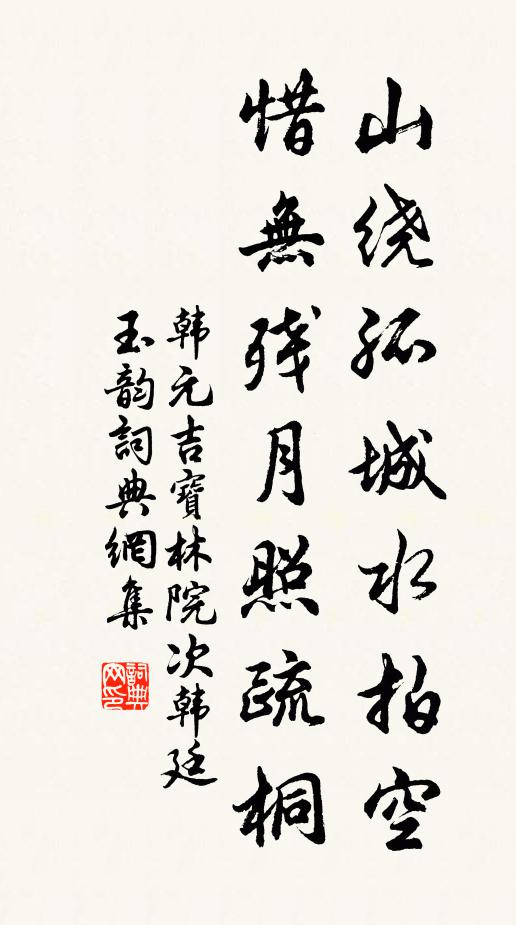 山绕孤城水拍空
惜無残月照疏桐
韩元吉寶林院次韩廷
玉韵詞典網集
詞典网印